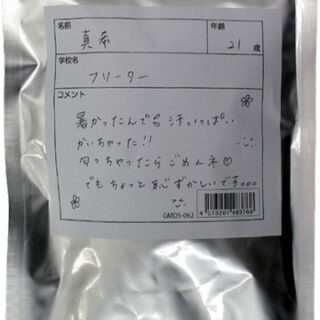 名前
真希
年齢
21 歳
学校名
フリーター
コメント
暑かったんで今汗いっぱい
かいちゃった!!
匂っちゃったらごめんネ♡
でもちょっと恥ずかしいです。。。
GMDS-062
4 573201 483760